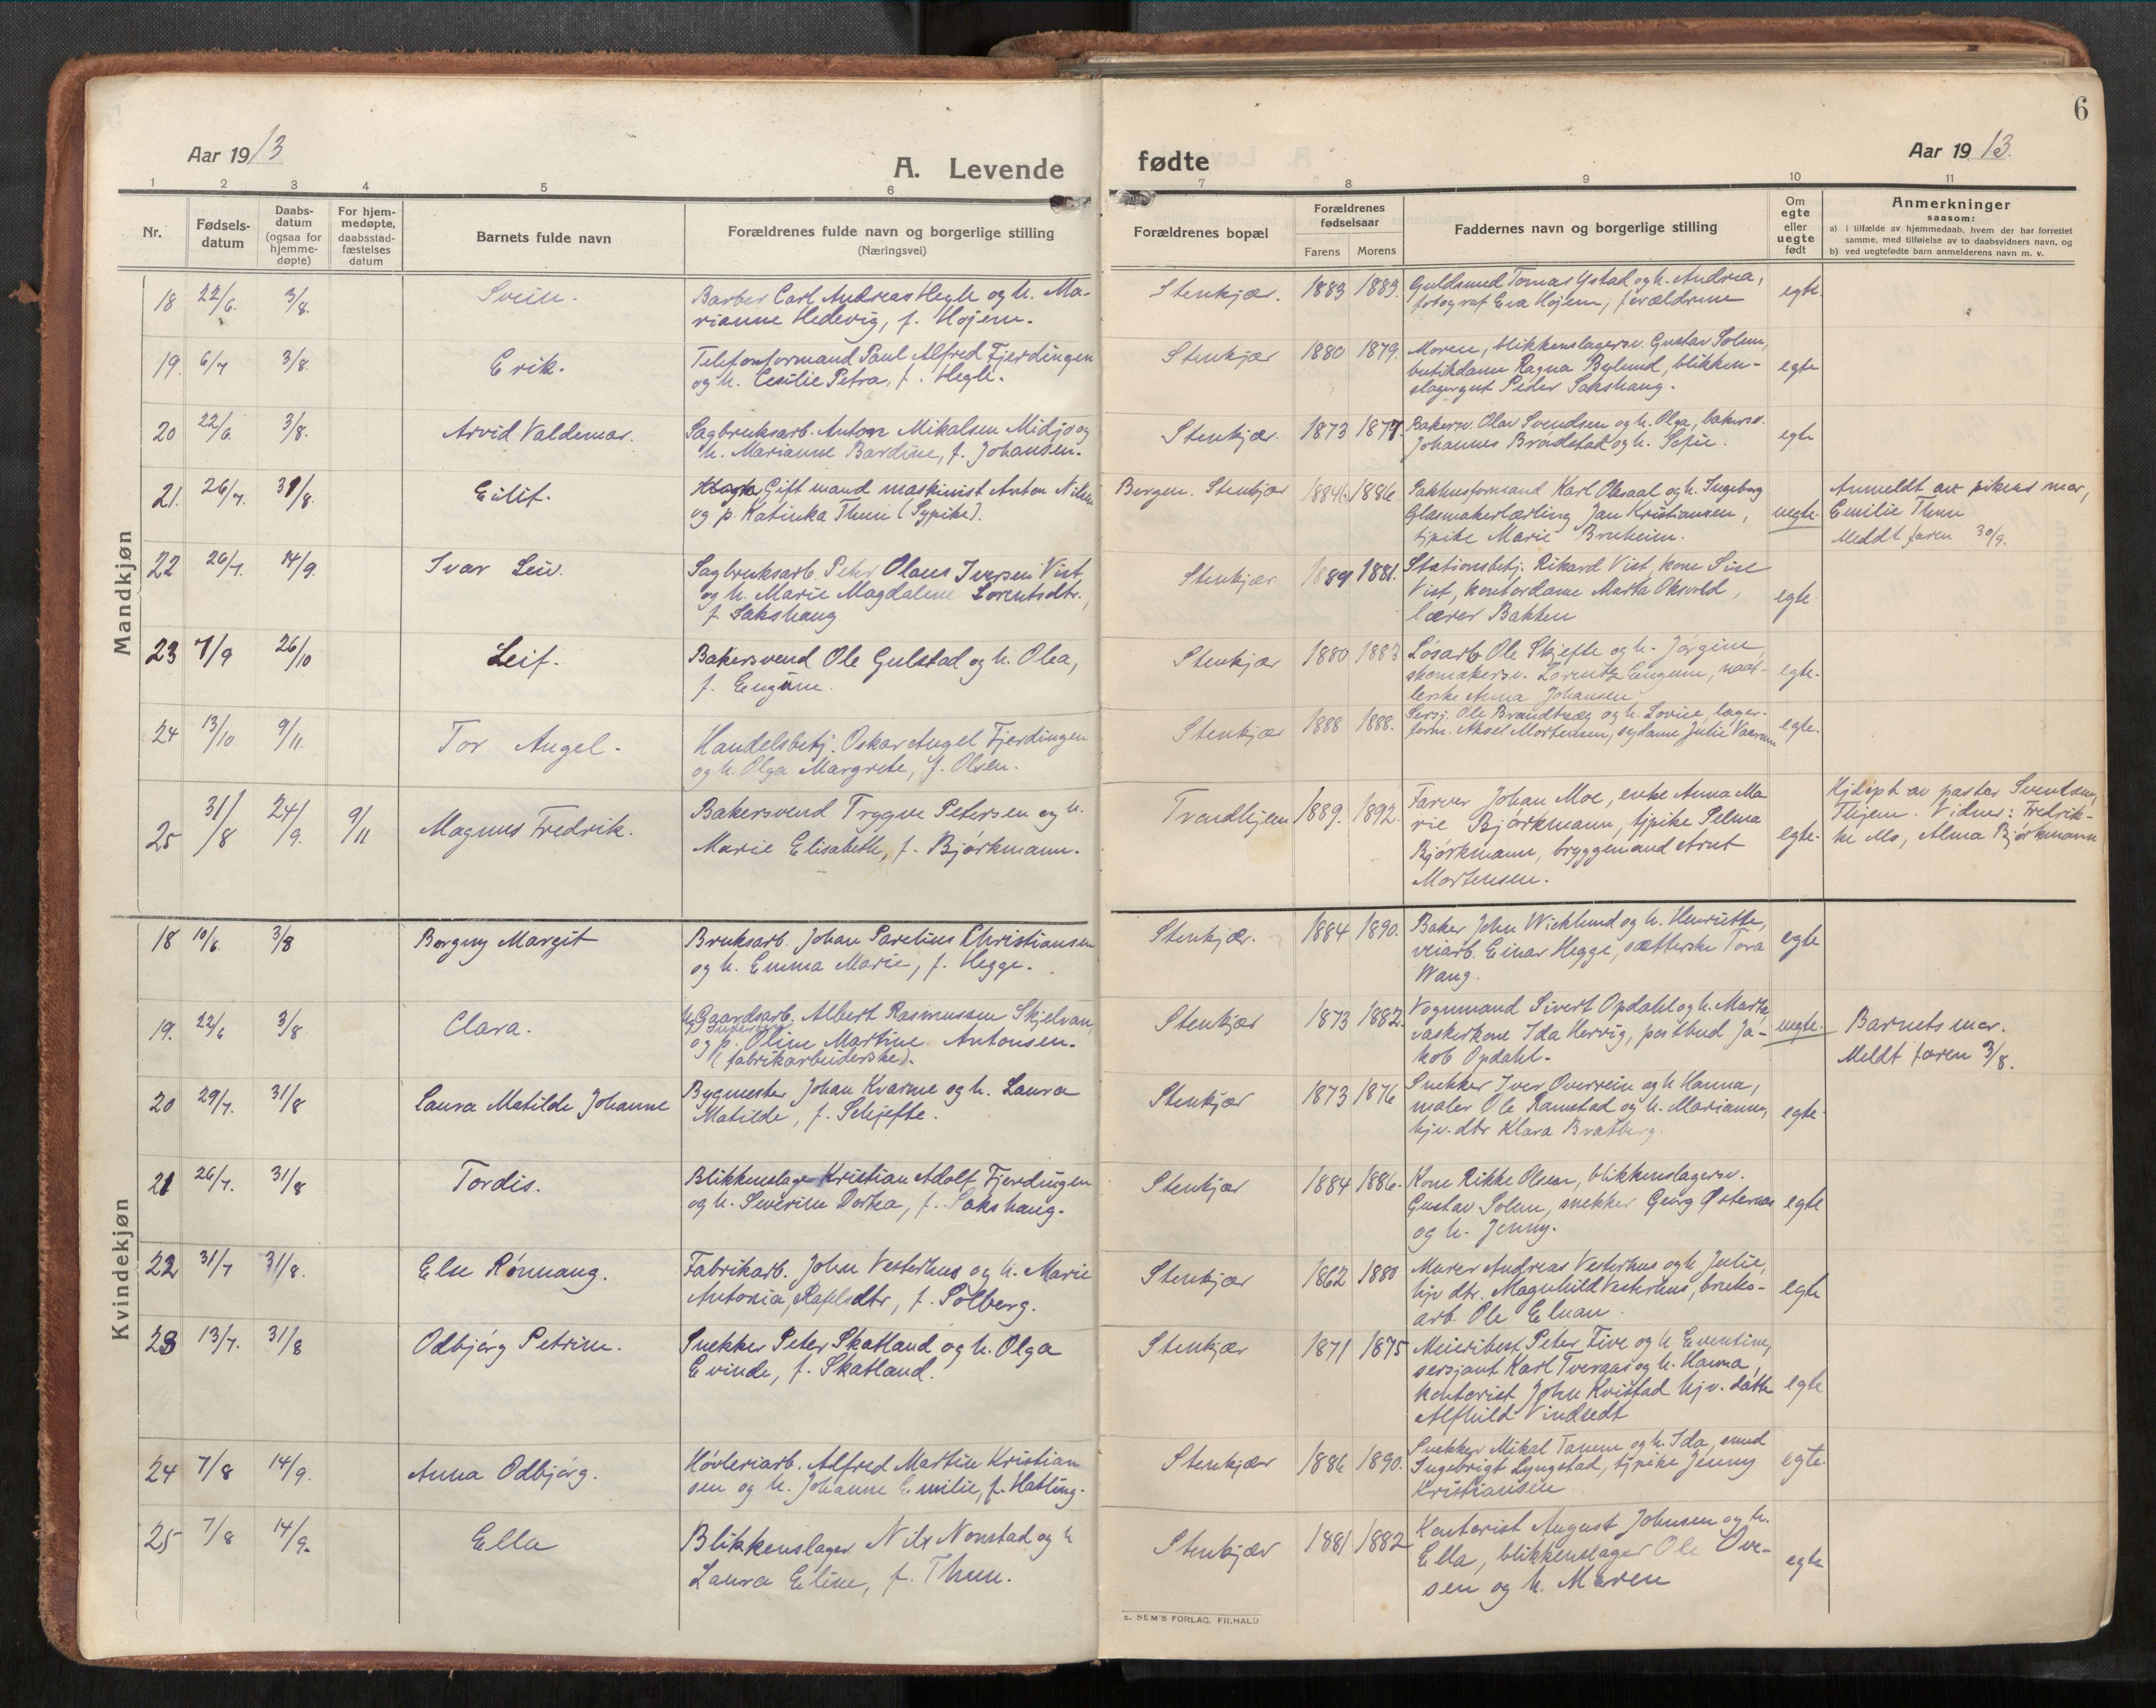 6
Aar 1913
A. Levende
fødte
Aar 1913.
1 2 3 4 5 6 7 8 9 10 11
Nr.
Fødsels-
datum
Daabs-
datum
(ogsaa for
hjemme-
døpte)
For hjem-
medøpte,
daabsstad-
fæstelses
datum
Barnets fulde navn
Forældrenes fulde navn og borgerlige stilling
(Næringsvei)
Forældrenes bopæl
Forældrenes
fødselsaar
Farens Morens
Faddernes navn og borgerlige stilling
Om
egte
eller
uegte
født
Anmerkninger
saasom:
a) i tilfælde av hjemmedaab, hvem der har forrettet
samme, med tilføielse av to daabsvidners navn, og
b) ved uegtefødte barn anmelderens navn m. v.
Mandkjøn
18 22/6. 3/8. Svein.
Barber Carl Andreas Hegle og h. Ma-
rianne Hedevig, f. Højem.
Stenkjær. 1883 1883.
Guldsmed Tomas Ystad og h. Andrea,
fotograf Eva Højem, forældrene
egte.
19. 6/7 3/8. Erik.
Telefonformand Paul Alfred Fjerdingen
og h. Cecilie Petra, f. Hegle.
Stenkjær 1880 1879.
Moren, blikkenslagersv. Gustav Solem,
butikdame Ragna Bylund, blikken-
slagergut Peder Sakshaug.
egte
20 22/6. 3/8. Arvid Valdemar.
Sagbruksarb. Anton Mikalsen Midjo og
h. Marianne Bardine, f. Johansen.
Stenkjær. 1873 1877.
Bakersv. Olav Svendsen og h. Olga, bakersv.
Johannes Brandstad og h. Sofie.
egte
21. 26/7. 31/8. Eilif.
Gift mand maskinist Anton Nilsen
og p. Katinka Thun (Sypike).
Bergen. Stenkjær 1884 1886.
Pakhusformand Karl Oksaal og h. Ingeborg
Glasmakerlærling Jan Kristiansen,
tjpike Marie Bruheim.
uegte.
Anmeldt av pikens mor,
Emilie Thun
Meddt faren 30/9.
22 20/7. 14/9. Ivar Leiv.
Sagbruksarb. Peter Olaus Iversen Vist
og h. Marie Magdalene Lorentsdtr.,
f. Sakshaug
Stenkjær 1881.
Stationsbetj. Rikard Vist, kone Sise
Vist, kontordame Marta Oksvold,
lærer Bakken
egte
23 7/9 26/10 Leif.
Bakersvend Ole Gulstad og h. Olea,
f. Engum.
Stenkjær 1880 1883
Løsarb. Ole Skjefte og h. Jørgine,
skomakersv. Lorentz Engum, naat-
lerske Anna Johansen
egte.
24 13/10 9/11. Tor Angel.
Handelsbetj. Oskar Angel Fjerdingen
og h. Olga Margrete, f. Olsen.
Stenkjær 1888 1888.
Sersj. Ole Brandtzæg og h. Lovise, lager-
form. Aksel Mortensen, sydame Julie
egte.
25 31/8 24/9. 9/11 Magnus Fredrik.
Bakersvend Trygve Petersen og h.
Marie Elisabeth, f. Bjørkmann.
Trondhjem 1889. 1892.
Farver Johan Moe, enke Anna Ma
rie Bjørkmann, tjpike Selma
Bjørkmann, bryggemand Arnt
Mortensen.
egte.
Hjdøpt av pastor Svendsen,
Thjem. Vidner: Fredrik-
ke Mo, Alma Bjørkmann
Kvindekjøn
18 10/6. 3/8 Borgny Margit
Bruksarb. Johan Parelius Christiansen
og h. Emma Marie, f. Hegge.
Stenkjær. 1884 1890.
Baker John Wicklund og h. Henriette,
veiarb. Einar Hegge, sætterske Tora
Wang.
egte
19. 22/6 3/8 Clara.
Gaardsarb. Albert Rasmussen Skjelvan,
og p. Oline Martine Antonsen.
(fabrikarbeiderske).
Stenkjær 1873 1882.
Vognmand Sivert Opdahl og h. Marta,
vaskerkone Ida Hervig, postbud Ja-
kob Opdahl.
uegte.
Barnets mor.
Meldt faren 3/8.
20 29/7. 31/8 Laura Matilde Johanne
Bygmester Johan Kvarme og h. Laura
Matilde, f. Schjefte.
Stenkjær 1873 1876
Snekker Iver Overrein og h Hanna,
maler Ole Ramstad og h. Marianne,
hjv. dtr Klara Bratberg.
egte.
21 26/7. 31/8 Tordis.
Blikkenslager Kristian Adolf Fjerdingen
og h. Severine Dortea, f. Sakshaug.
Stenkjær 1884 1886.
Kone Rikke Olsen, blikkenslagersv.
Gustav Solem, snekker Georg Østernæs
og h. Jenny.
egte
22 31/7 31/8. Else Rønnaug.
Fabrikarb. John Vesterhus og h. Marie
Antonia Rafelsdtr, f. Solberg.
Stenkjær 1862 1880
Murer Andreas Vesterhus og h Julie,
hjv dtr. Magnhild Vesterhus, bruks-
arb. Ole Elnan.
egte
23 13/7. 31/8 Odbjørg Petrine.
Snekker Peter Skatland og h. Olga
Evinde, f. Skatland.
Stenkjær 1871 1875
Meieribest. Peter Five og h Eventine,
sersjant Karl Tveraas og h. Hanna,
kontorist John Kvistad hjv. datter
Alfhild Vindsedt
egte
24 7/8 14/9. Anna Odbjørg.
Høvleriarb. Alfred Martin Kristian
sen og h. Johanne Emilie, f. Hatling.
Stenkjær 1886 1890.
Snekker Mikal Tanem og h. Ida, smed
Ingebrigt Lyngstad, tjpike Jenny
Kristiansen
egte.
25 7/8 14/9. Ella
Blikkenslager Nils Nonstad og h
Laura Eline, f. Thun.
Stenkjær 1881 1882
Kontorist August Johnsen og h.
Ella, blikkenslager Ole Ove-
sen og h. Maren
egte
E. SEM'S FORLAG. FR.HALD